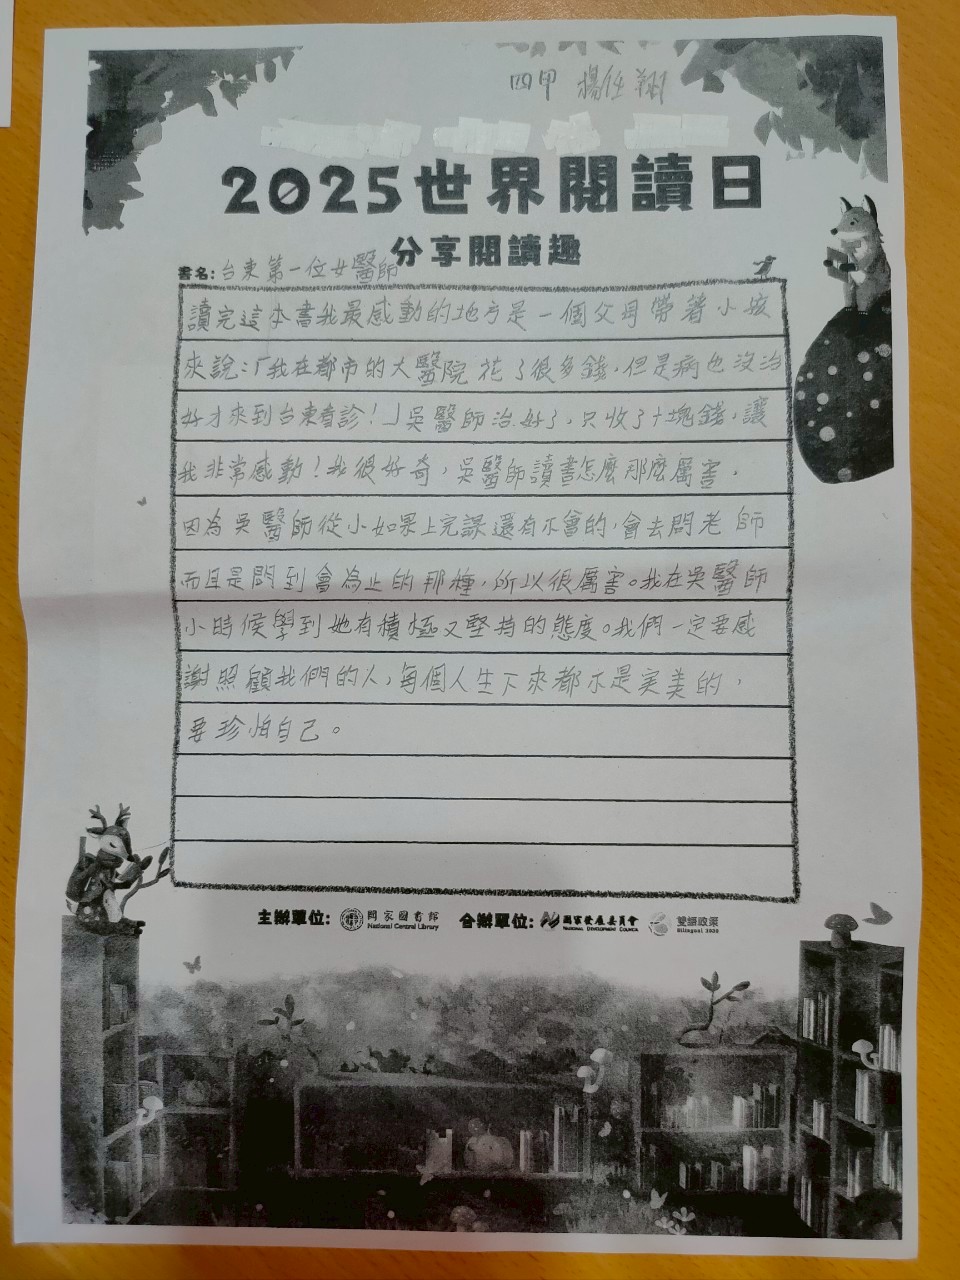 四甲 楊任翔
2025世界閱讀日
分享閱讀趣
書名:台東第一位女醫師
讀完這本書我最感動的地方是一個父母帶著小孩
來說:「我在都市的大醫院花了很多錢,但是病也沒治
好才來到台東看診!」吳醫師治好了,只收了十塊錢,讓
我非常感動!我很好奇,吳醫師讀書怎麼那麼厲害,
因為吳醫師從小如果上完課還有不會的,會去問老師
而且是問到會為止的那種,所以很厲害。我在吳醫師
小時候學到她有積極又堅持的態度。我們一定要感
謝照顧我們的人,每個人生下來都不是完美的,
要珍怕自己。
主辦單位: 國家圖書館 合辦單位: 國家發展委員會 雙語政策
National Central Library NATIONAL DEVELOPMENT COUNCIL Bilingual 2030